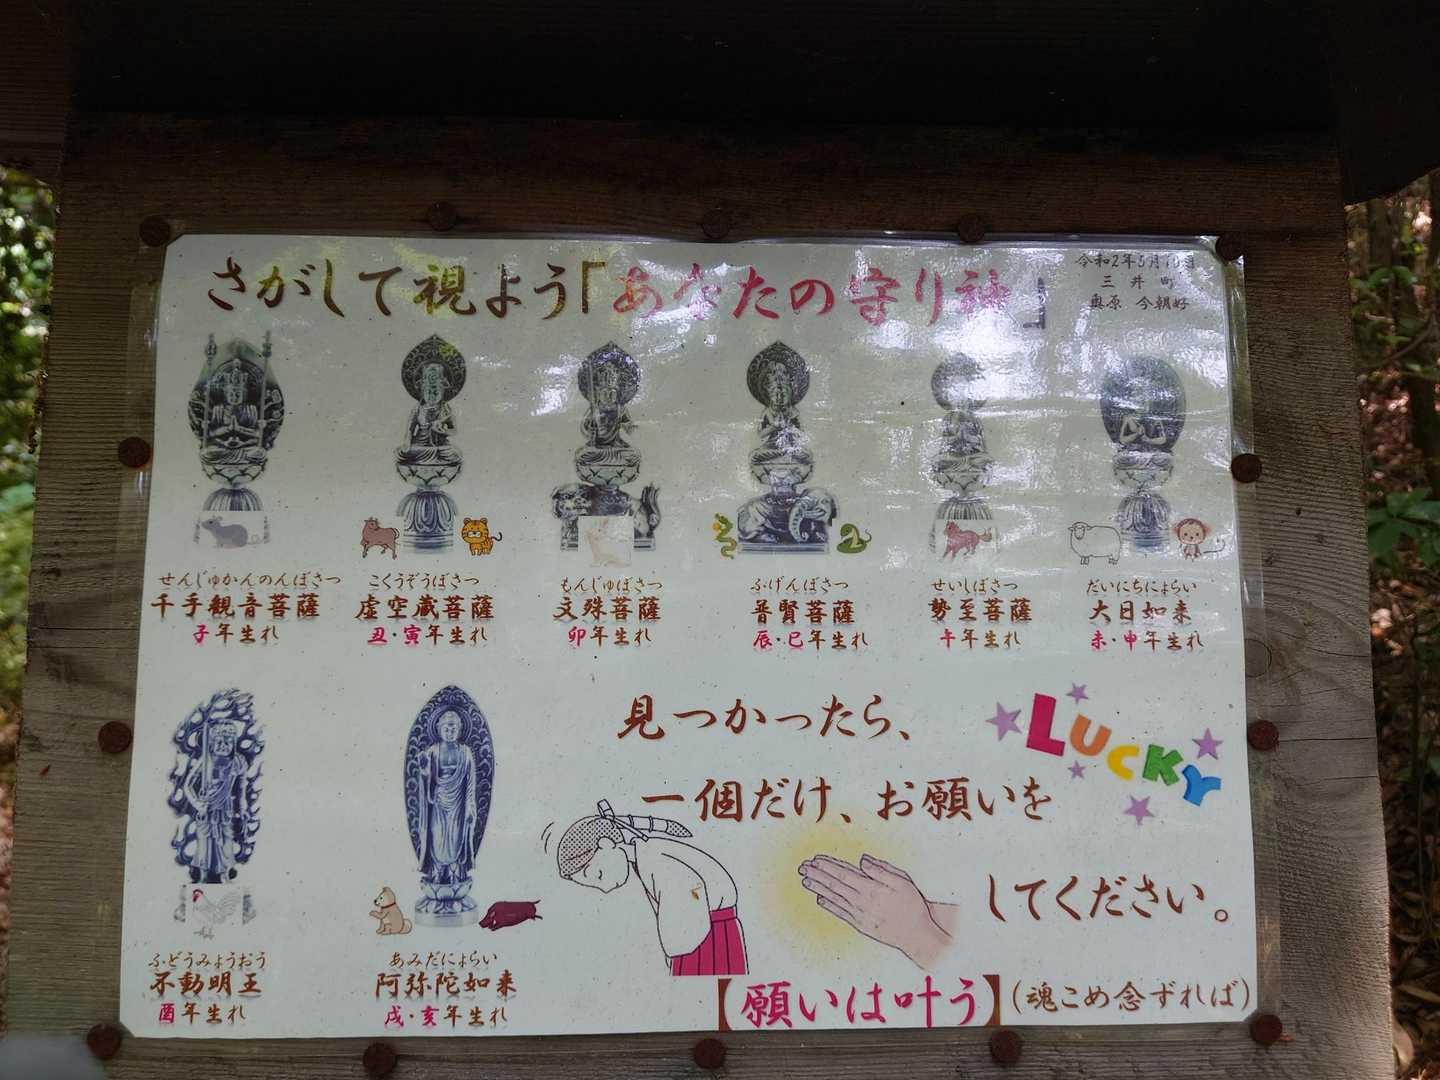 さがして視よう「あなたの守り神」
令和2年5月10日
三井町
奥原 今朝好
せんじゅかんのんぼさつ
千手観音菩薩
子年生れ
こくうぞうぼさつ
虚空蔵菩薩
丑・寅年生れ
もんじゅぼさつ
文殊菩薩
卯年生れ
ふげんぼさつ
普賢菩薩
辰・巳年生れ
せいしぼさつ
勢至菩薩
午年生れ
だいにちにょらい
大日如来
未・申年生れ
ふどうみょうおう
不動明王
酉年生れ
あみだにょらい
阿弥陀如来
戌・亥年生れ
見つかったら、
LUCKY
一個だけ、お願いを
してください。
【願いは叶う】(魂こめ念ずれば)